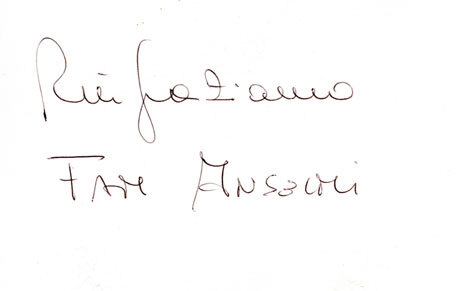 Ringraziamo
Fam Anselmi